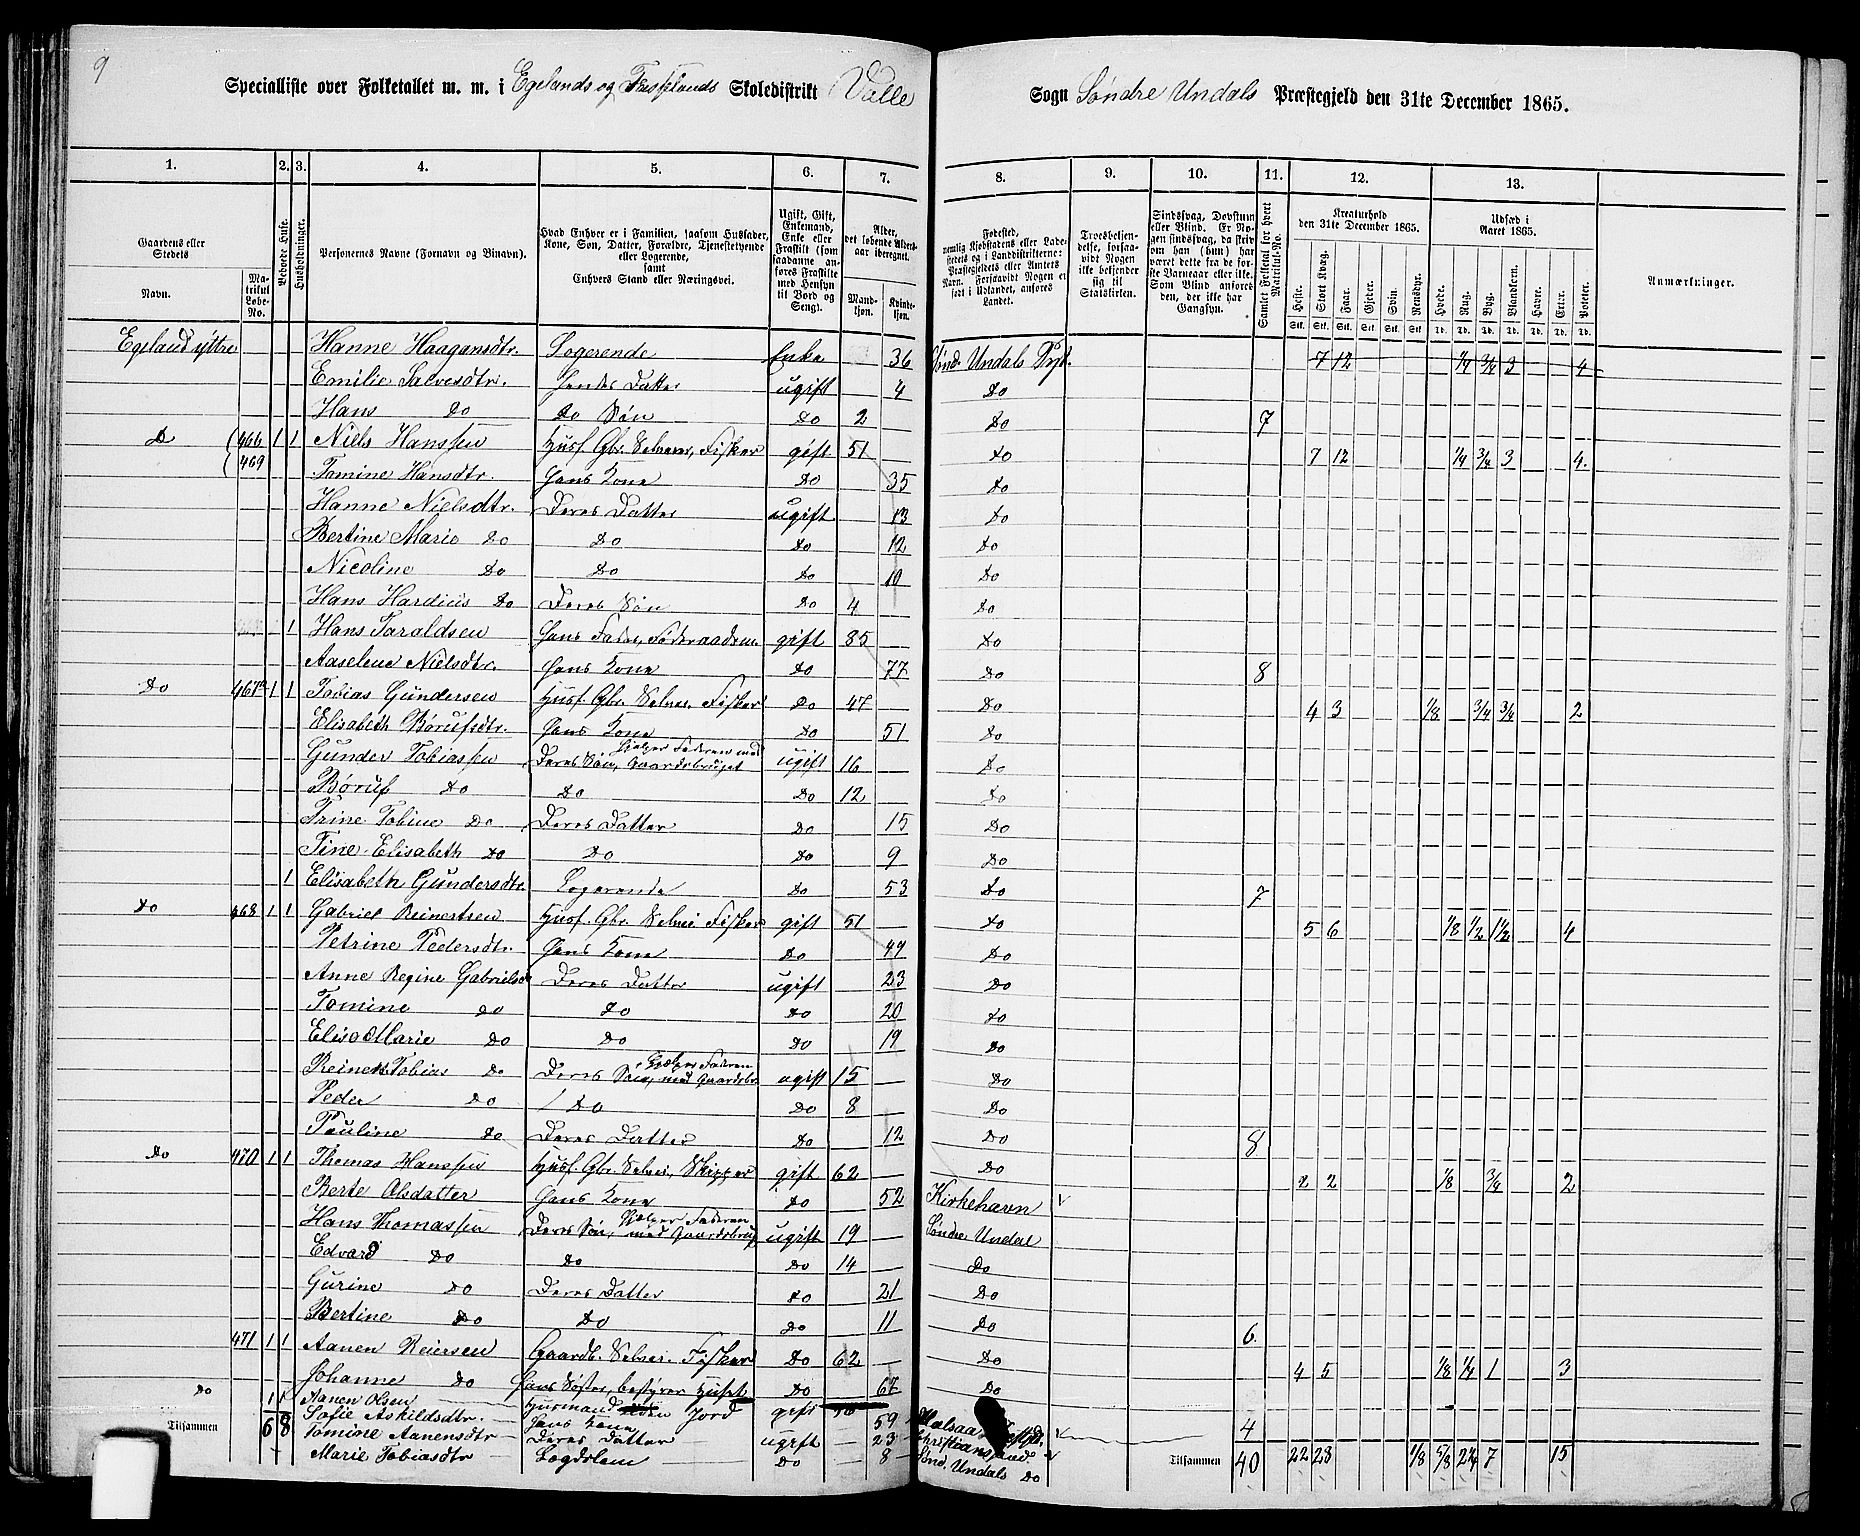 9
Specialliste over Folketallet m. m. i Egelands og Fuskelands Skoledistrikt Valle Sogn Søndre Undals Præstegjeld den 31te December 1865.
1. 2. 3. 4. 5. 6. 7. 8. 9. 10. 11. 12. 13.
Gaardens eller Stedets Navn. Matrikul Løbe-No. Beboede Huse. Husholdninger. Personernes Navne (Fornavn og Binavn). Hvad Enhver er i Familien, saasom Husfader, Kone, Søn, Datter, Forældre, Tjenestetyende eller Logerende, samt Enhvers Stand eller Næringsvei. Ugift, Gift, Enkemand, Enke eller Fraskilt (som saadanne anføres Fraskilte med Hensyn til Bord og Seng). Alder, det løbende Alders-aar iberegnet. Mandkjøn. Kvindekjøn.
Fødested, nemlig Kjøbstadens eller Ladestedets og i Landdistrikterne: Præstegjeldets eller Amtets Navn. Forsaavidt Nogen er født i Udlandet, anføres Landet. Troesbekjendelse, forsaavidt Nogen ikke bekjender sig til Statskirken. Sindssvag, Døvstum eller Blind. Er Nogen sindssvag, da skrives om han (hun) har været dette fra de første Barneaar eller ikke. Som Blind anføres den, der ikke har Gangsyn. Samlet Folketal for hvert Matrikul-No. Kreaturhold den 31te December 1865. Udsæd i Aaret 1865. Anmærkninger.
Heste. Stort Kvæg. Faar. Gjeder. Svin. Rensdyr. Hvede. Rug. Byg. Blandkorn. Havre. Erter. Poteter.
Stk. Stk. Stk. Stk. Stk. Stk. Td. Td. Td. Td. Td. Td. Td.
Egeland yttre Hanne Haagansdtr. Logerende Enke 36 Sønd. Undals Prjt. 7 12 1/4 3/4 3 4
Emilie Salvesdtr. Hendes Datter ugift 4 Do
Hans Do Do Søn Do 2 Do 7
Do 466 1 1 Niels Hanssen Husf. Gbr. Selveier, Fisker gift 51 Do 7 12 1/4 3/4 3 4.
469 Tomine Hansdtr. Hans Kone Do 35 Do
Hanne Nielsdtr. Deres Datter ugift 13 Do
Bertine Marie Do Do Do 12 Do
Nicoline Do Do Do 10 Do
Hans Hardius Do Deres Søn Do 4 Do
1 Hans Taraldsen Hans Fader, Føderaadsm. gift 85 Do
Aaselene Nielsdtr. Hans Kone Do 77 Do 8
Do 467a 1 1 Tobias Gundersen Husf. Gbr. Selvei. Fisker Do 47 Do 4 3 1/8 3/4 3/4 2
Elisabeth Børufsdtr. Hans Kone Do 51 Do
Gunder Tobiassen Deres Søn, hjelper Faderen med Gaardsbruget ugift 16 Do
Børuf Do Do Do 12 Do
Trine Tobine Do Deres Datter Do 15 Do
Tine Elisabeth Do Do Do 9 Do
1 Elisabeth Gundersdtr. Logerende Do 53 Do 7
Do 468 1 1 Gabriel Reinertsen Husf. Gbr. Selvei. Fisker gift 51 Do 5 6 1/8 1/2 1 1/2 4
Petrine Pedersdtr. Hans Kone Do 49 Do
Anne Regine Gabrielsd Deres Datter ugift 23 Do
Tomine Do Do Do 20 Do
Elise Marie Do Do Do 19 Do
Reinert Tobias Do Deres Søn, hjelper Faderen med Gaardsbr. ugift 15 Do
Peder Do Do Do 8 Do
Pauline Do Deres Datter Do 12 Do 8
Do 470 1 1 Thomas Hanssen Husf. Gbr. Selvei., Skipper gift 62 Do 2 2 1/8 3/4 2
Berte Olsdatter Hans Kone Do 52 Kirkehavn
Hans Thomassen Deres Søn, hjelper Faderen med Gaardsbrug ugift 19 Søndre Undal
Edvard Do Do Do 14 Do
Gurine Do Deres Datter Do 21 Do
Bertine Do Do Do 11 Do 6.
471 1 1 Aanen Reiersen Gaardb. Selvei. Fisker Do 62 Do 4 5 1/8 1/4 1 3
Johanne Do Hans Søster, bestyrer Huset Do 67 Do
Do 1 1 Aanen Olsen Husmand uden Jord gift
Sofie Askildsdtr. Hans Kone 59 4
Tomine Aanensdtr Deres Datter ugift 23 Christianssand
Marie Tobiasdtr Lægdslem Do 8 Sønd. Undals Do
Tilsammen 6 8 Tilsammen 40 22 28 1/8 5/8 2 1/4 7 15